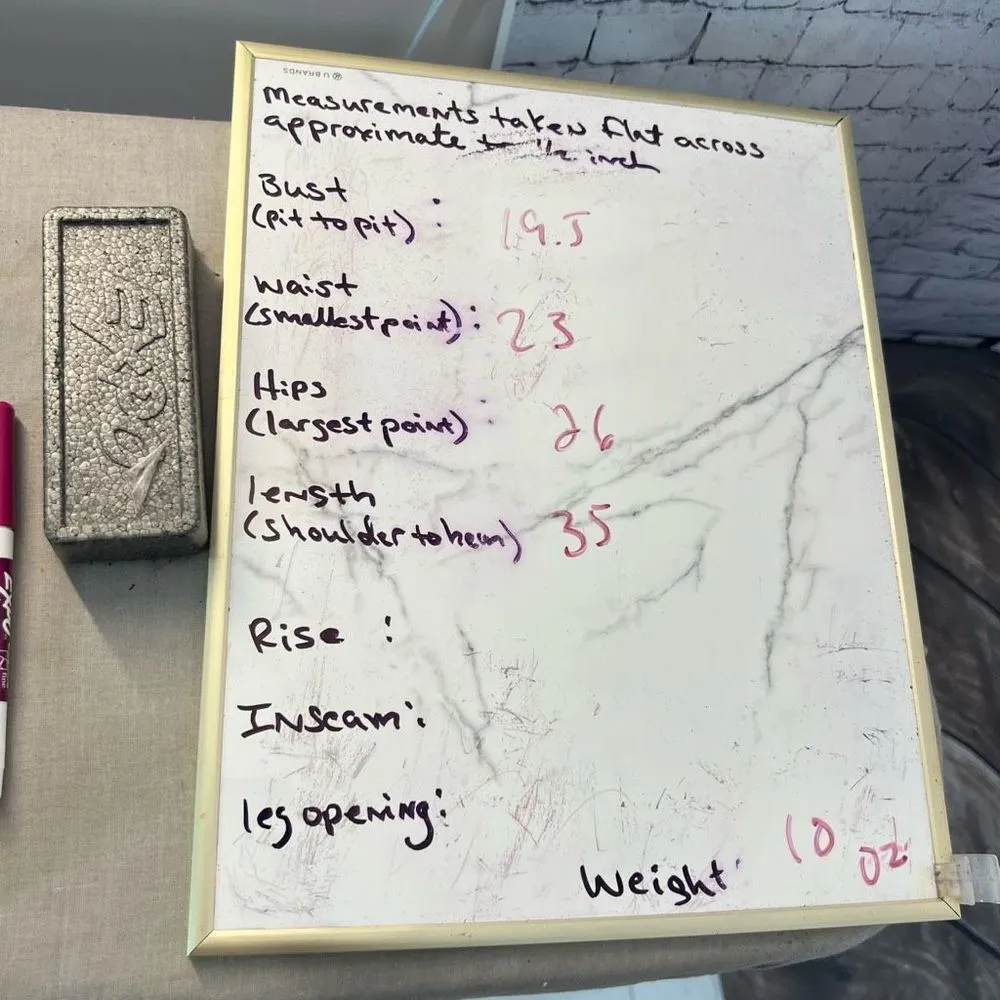 U BRANDS
Measurements taken flat across
approximate to 1/2 inch
Bust
(pit to pit) : 19.5
waist
(smallest point) : 23
Hips
(largest point) : 26
length
(shoulder to hem) 35
Rise :
Inseam :
leg opening :
Weight 10 oz
EXPO
fine